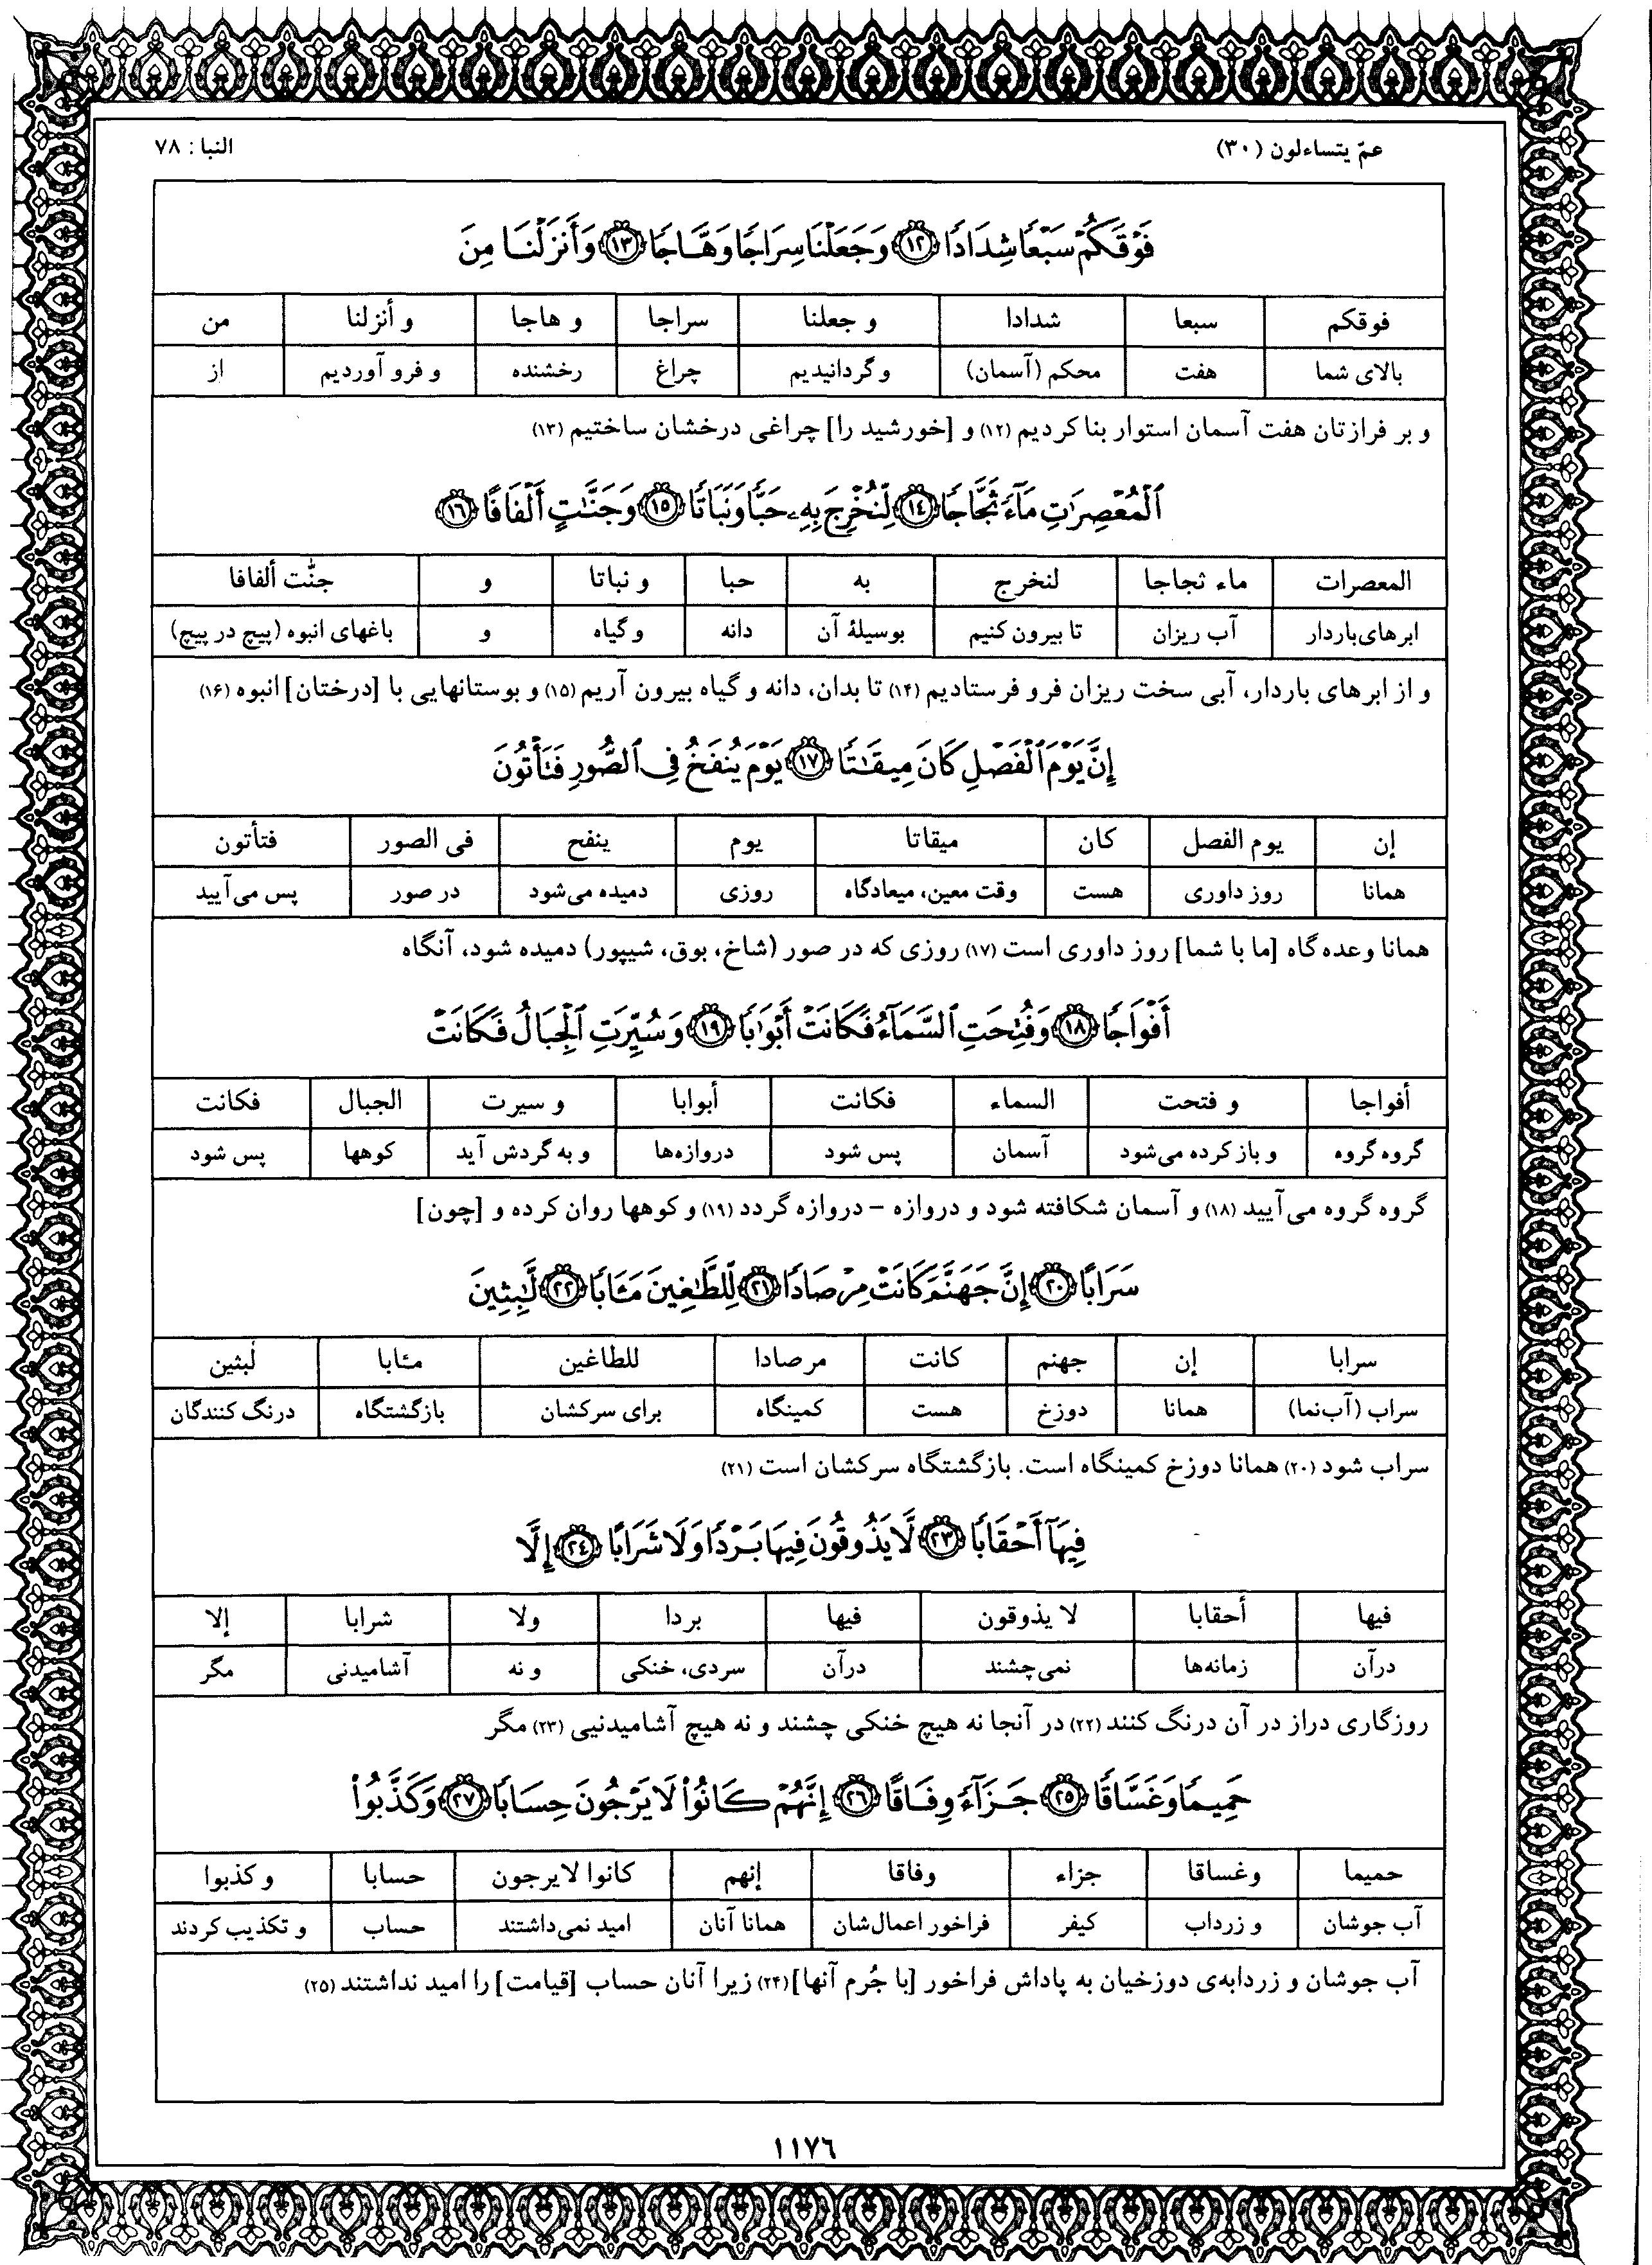 عمّ يتساءلون (۳۰) النبا: ۷۸
فَوْقَكُمْ سَبْعًا شِدَادًا ﴿١٢﴾ وَجَعَلْنَا سِرَاجًا وَهَّاجًا ﴿١٣﴾ وَأَنزَلْنَا مِنَ
فوقکم سبعا شدادا و جعلنا سراجا و هاجا و أنزلنا من
بالای شما هفت محکم (آسمان) و گردانیدیم چراغ رخشنده و فرو آوردیم از
و بر فرازتان هفت آسمان استوار بنا کردیم (۱۲) و [خورشید را] چراغی درخشان ساختیم (۱۳)
ٱلْمُعْصِرَٰتِ مَآءً ثَجَّاجًا ﴿١٤﴾ لِّنُخْرِجَ بِهِۦ حَبًّا وَنَبَاتًا ﴿١٥﴾ وَجَنَّٰتٍ أَلْفَافًا ﴿١٦﴾
المعصرات ماء ثجاجا لنخرج به حبا و نباتا و جنّٰت ألفافا
ابرهای‌باردار آب ریزان تا بیرون کنیم بوسیلهٔ آن دانه و گیاه و باغهای انبوه (پیچ در پیچ)
و از ابرهای باردار، آبی سخت ریزان فرو فرستادیم (۱۴) تا بدان، دانه و گیاه بیرون آریم (۱۵) و بوستانهایی با [درختان] انبوه (۱۶)
إِنَّ يَوْمَ ٱلْفَصْلِ كَانَ مِيقَٰتًا ﴿١٧﴾ يَوْمَ يُنفَخُ فِى ٱلصُّورِ فَتَأْتُونَ
إن يوم الفصل كان ميقاتا يوم ينفح فی الصور فتأتون
همانا روز داوری هست وقت معین، میعادگاه روزی دمیده می‌شود در صور پس می‌آیید
همانا وعده گاه [ما با شما] روز داوری است (۱۷) روزی که در صور (شاخ، بوق، شیپور) دمیده شود، آنگاه
أَفْوَاجًا ﴿١٨﴾ وَفُتِحَتِ ٱلسَّمَآءُ فَكَانَتْ أَبْوَٰبًا ﴿١٩﴾ وَسُيِّرَتِ ٱلْجِبَالُ فَكَانَتْ
أفواجا و فتحت السماء فكانت أبوابا و سيرت الجبال فكانت
گروه گروه و باز کرده می‌شود آسمان پس شود دروازه‌ها و به گردش آید کوهها پس شود
گروه گروه می‌آیید (۱۸) و آسمان شکافته شود و دروازه – دروازه گردد (۱۹) و کوهها روان کرده و [چون]
سَرَابًا ﴿٢٠﴾ إِنَّ جَهَنَّمَ كَانَتْ مِرْصَادًا ﴿٢١﴾ لِّلطَّٰغِينَ مَـَٔابًا ﴿٢٢﴾ لَّٰبِثِينَ
سرابا إن جهنم كانت مرصادا للطاغين مـٔابا لٰبثين
سراب (آب‌نما) همانا دوزخ هست کمینگاه برای سرکشان بازگشتگاه درنگ کنندگان
سراب شود (۲۰) همانا دوزخ کمینگاه است. بازگشتگاه سرکشان است (۲۱)
فِيهَآ أَحْقَابًا ﴿٢٣﴾ لَّا يَذُوقُونَ فِيهَا بَرْدًا وَلَا شَرَابًا ﴿٢٤﴾ إِلَّا
فيها أحقابا لا يذوقون فيها بردا ولا شرابا إلا
درآن زمانه‌ها نمی‌چشند درآن سردی، خنکی و نه آشامیدنی مگر
روزگاری دراز در آن درنگ کنند (۲۲) در آنجا نه هیچ خنکی چشند و نه هیچ آشامیدنیی (۲۳) مگر
حَمِيمًا وَغَسَّاقًا ﴿٢٥﴾ جَزَآءً وِفَاقًا ﴿٢٦﴾ إِنَّهُمْ كَانُوا۟ لَا يَرْجُونَ حِسَابًا ﴿٢٧﴾ وَكَذَّبُوا۟
حميما وغساقا جزاء وفاقا إنهم كانوا لا يرجون حسابا و كذبوا
آب جوشان و زرداب کیفر فراخور اعمال‌شان همانا آنان امید نمی‌داشتند حساب و تکذیب کردند
آب جوشان و زردابه‌ی دوزخیان به پاداش فراخور [با جُرم آنها] (۲۴) زیرا آنان حساب [قیامت] را امید نداشتند (۲۵)
١١٧٦